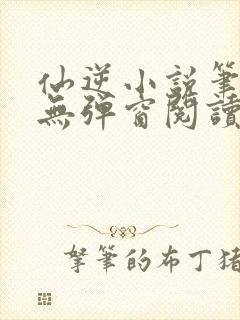 仙逆小說筆
無彈窗閱讀
拏筆的布丁猪